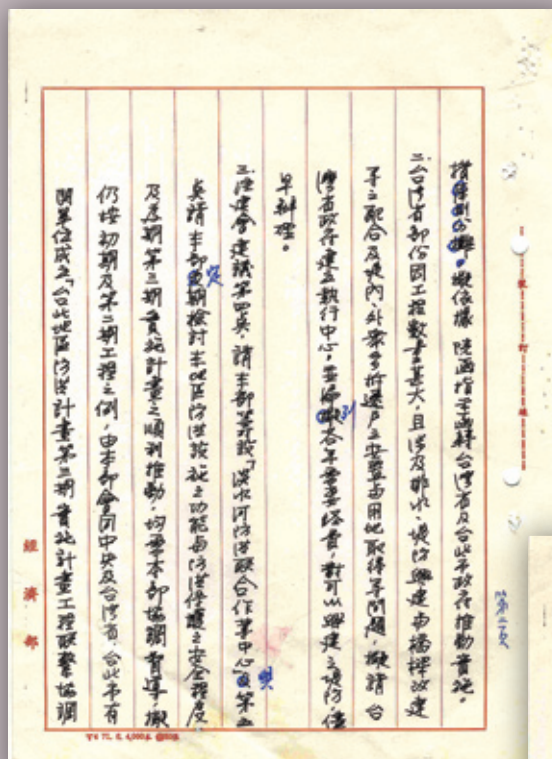 擬依據 院函指示函轉台灣省及台北市政府推動實施。
二、台灣省部份因工程數量甚大,且涉及排水、堤防興建與橋樑改建
等之配合及堤內、外眾多拆遷戶之安置與用地取得等問題,擬請台
灣省政府建立執行中心,並 各年需要經費,對可以興建之堤防,儘
早辦理。
三、經建會建議第四點,請本部籌設「淡水河防洪聯合作業中心」及第五
點請本部定期檢討本地區防洪設施之功能與防洪保護之安全程度,
及本期第三期實施計畫之順利推動,均需本部協調督導,擬
仍按初期及第二期工程之例,由本部會同中央及台灣省、台北市有
關單位成立「台北地區防洪計畫第三期實施計畫工程聯繫協調
第二頁
裝 訂 線
經濟部